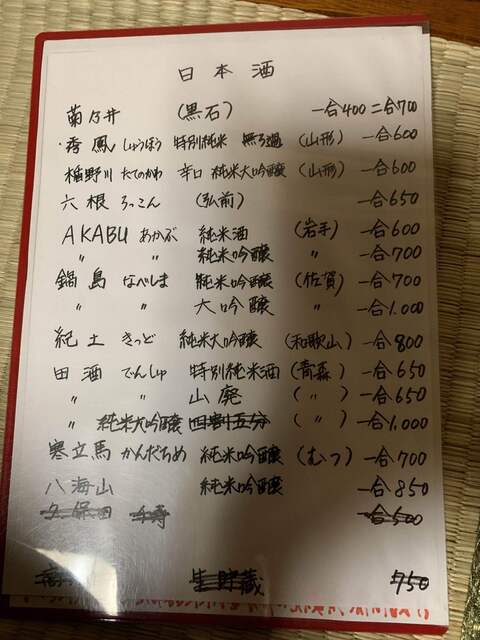 日本酒
菊乃井 (黒石) 一合400 二合700
・香鳳 しゅうほう 特別純米 無ろ過 (山形) 一合600
楯野川 たてのかわ 辛口 純米大吟醸 (山形) 一合600
六根 ろっこん (弘前) 一合650
AKABU あかぶ 純米酒 (岩手) 一合600
〃 〃 純米吟醸 〃 一合700
鍋島 なべしま 純米吟醸 (佐賀) 一合700
〃 〃 大吟醸 〃 一合1.000
紀土 きっど 純米大吟醸 (和歌山) 一合800
田酒 でんしゅ 特別純米酒 (青森) 一合650
〃 〃 山廃 (〃) 一合650
〃 純米大吟醸 四割五分 (〃) 一合1,000
寒立馬 かんだちめ 純米吟醸 (むつ) 一合700
八海山 純米吟醸 一合850
久保田 千寿 一合500
生貯蔵 750